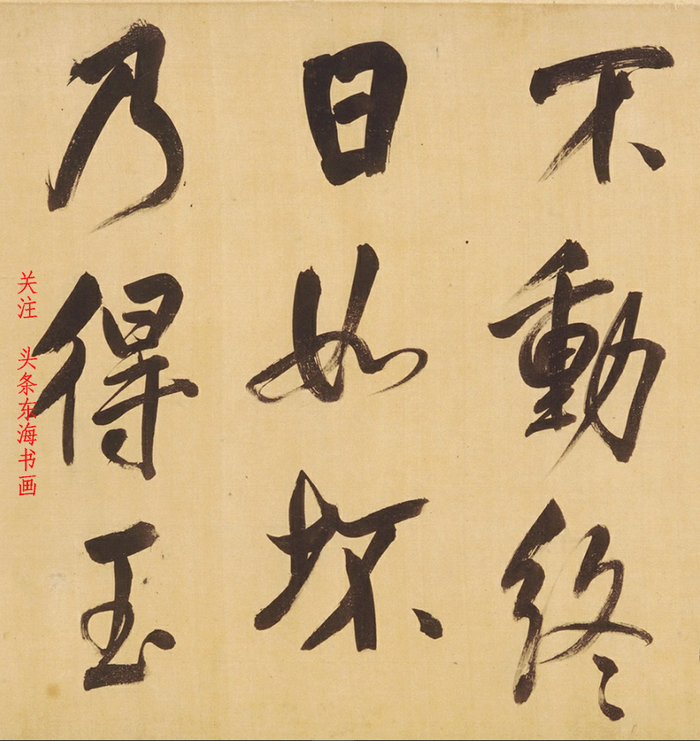 不動終
日如坏
乃得玉
关注 头条东海书画